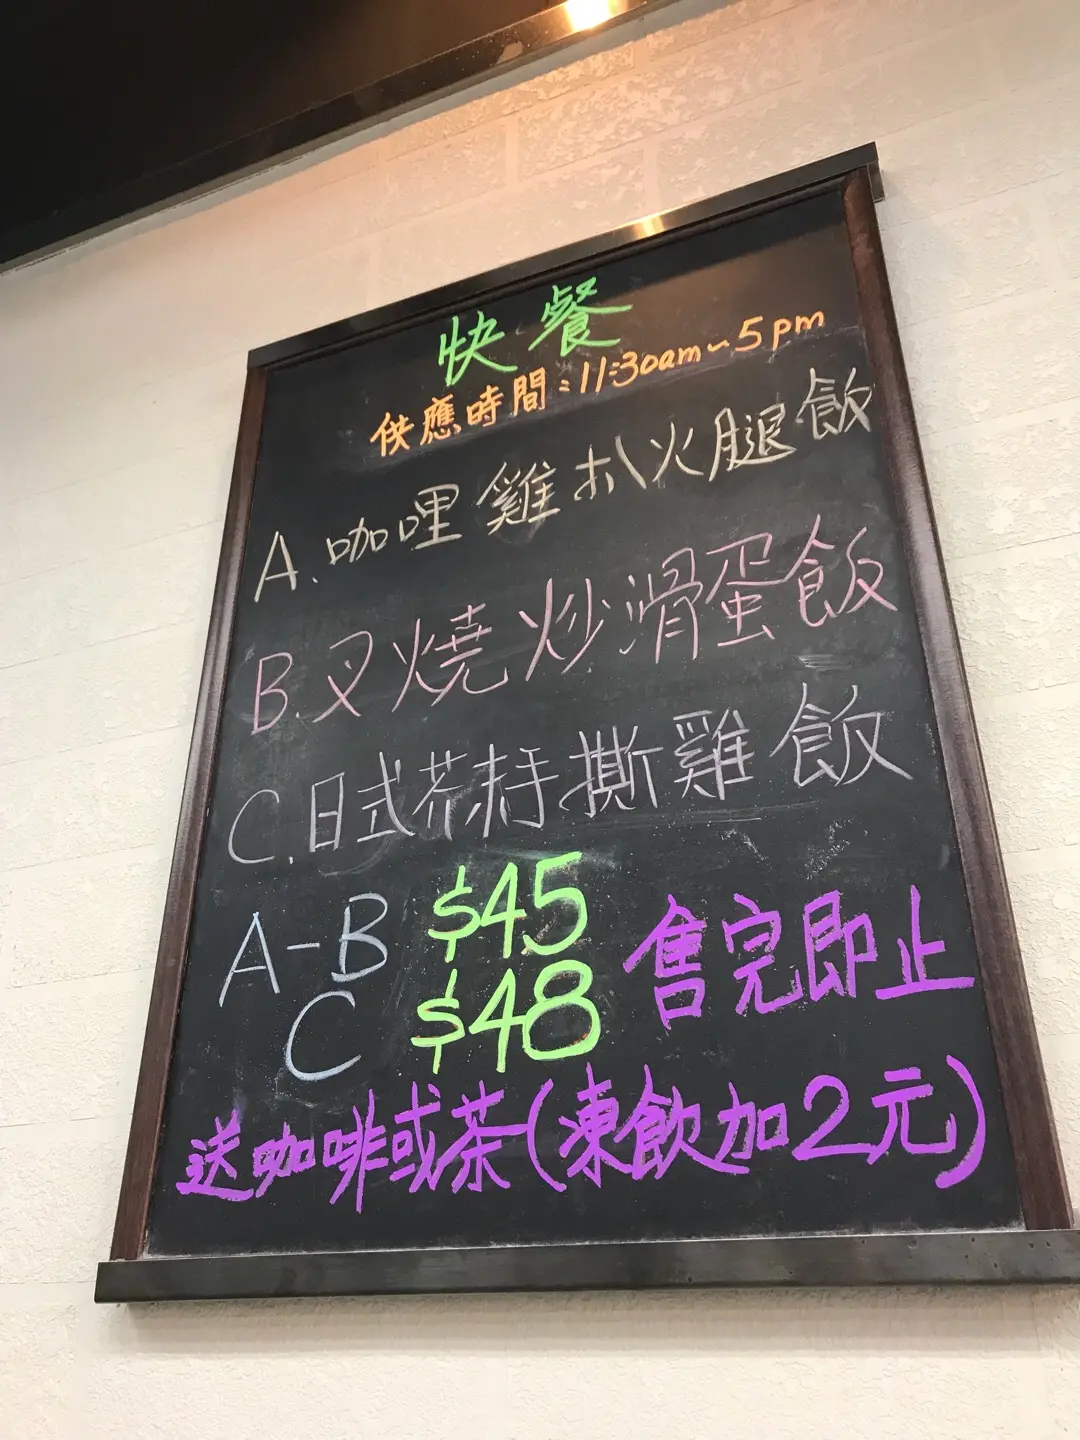 快餐
供應時間:11:30am~5pm
A.咖哩雞扒火腿飯
B.叉燒炒滑蛋飯
C.日式芥末手撕雞飯
A-B $45
C $48
售完即止
送咖啡或茶(凍飲加2元)